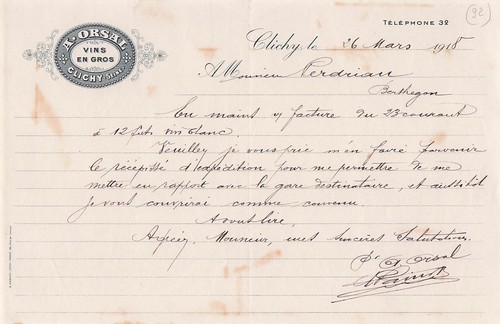 92
TÉLÉPHONE 32
A. ORSAL
VINS
EN GROS
CLICHY (SEINE)
Clichy, le 26 Mars 1918
A Monsieur Perdriau
Berthegon
En mains v/ facture du 23 courant
à 12 futs vin blanc.
Veuillez je vous prie m'en faire parvenir
le récépissé d'expédition pour me permettre de me
mettre en rapport avec la gare destinataire, et aussitôt
je vous couvrirai comme convenu.
A vous lire,
Agréez, Monsieur, mes sincères Salutations.
Pr A. Orsal